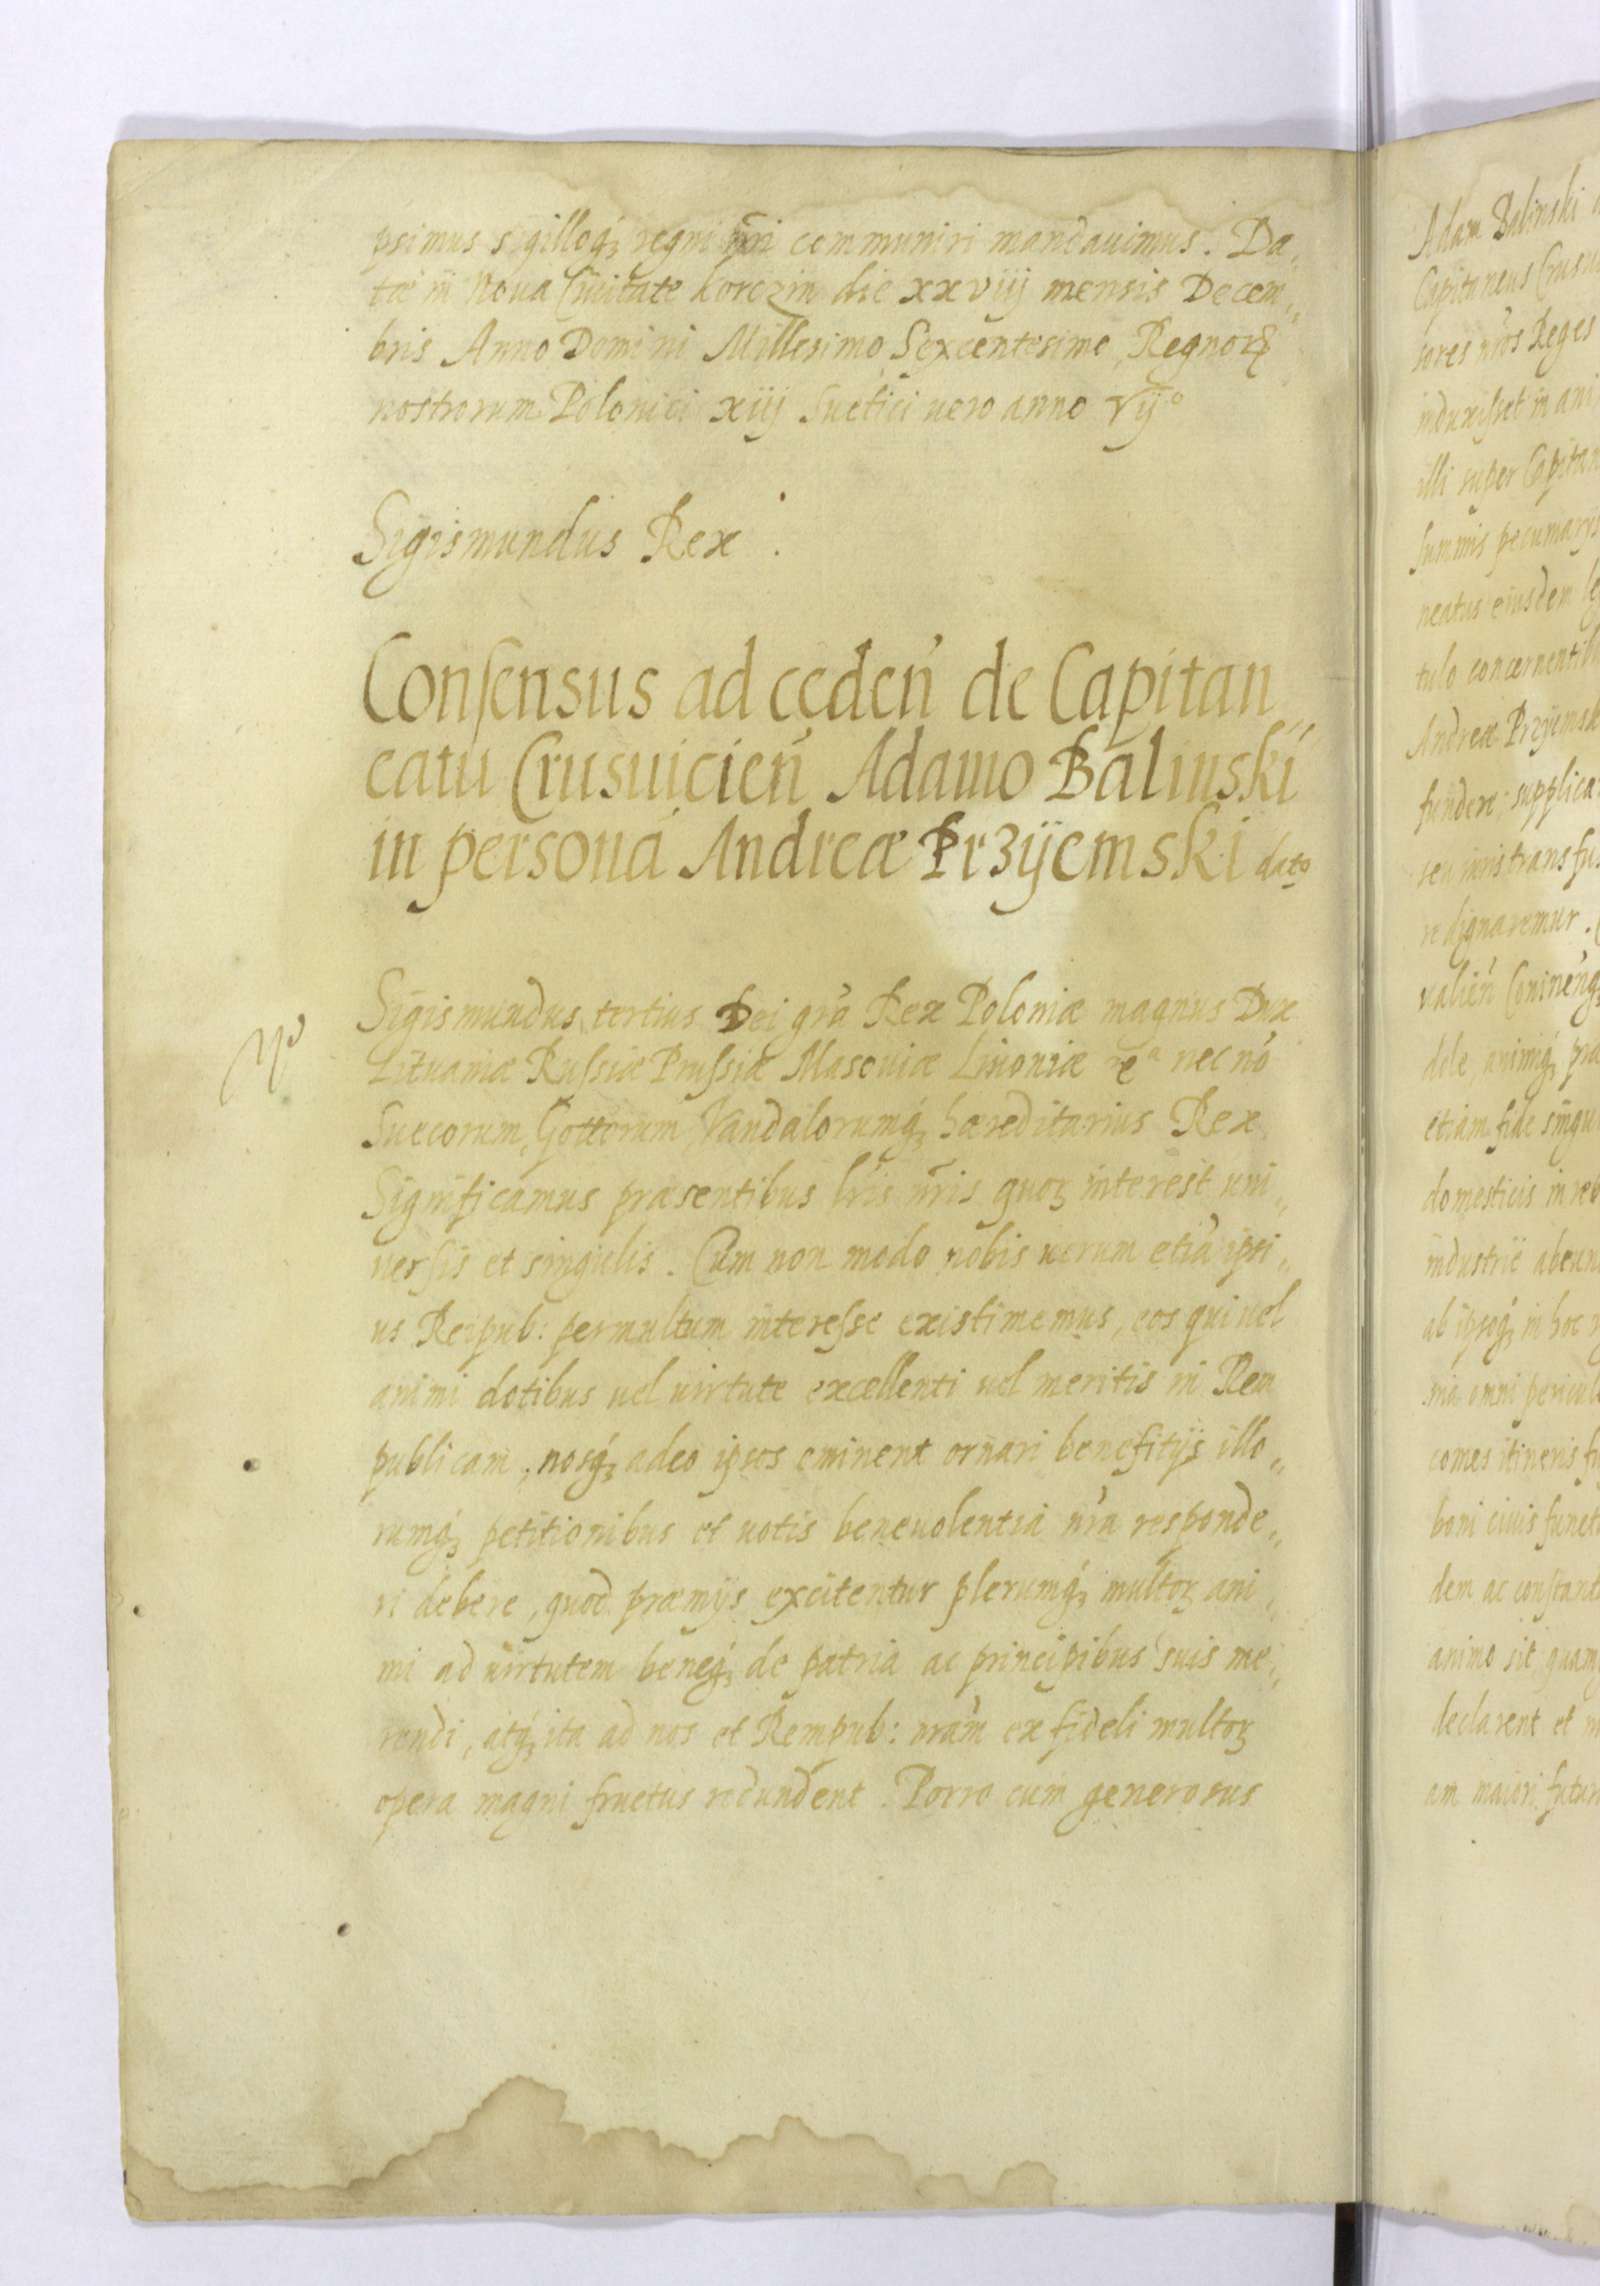 psimus sigilloq́ꝫ regni nr̃i communiri mandauimus. Da„
tæ in Noua Ciuitate Korczin die xxviij mensis Decem„
bris Anno Domini Millesimo Sexcentesimo Regnorꝝ
nostrorum Polonici xiij Suetici uero anno vijº
Sigismundus Rex.
Conſensus ad ceden̄ de Capitan„
eatu Crusuicien̄ Adamo Balinski
in personā Andreæ Przÿemski dato
Sigismundus tertius Dei grã Rex Poloniæ magnus Dux
Lituaniæ Ruſsiæ Pruſsiæ Masouiæ Liuoniæ &ᵃ nec nõ
Suecorum, Gottorum Vandalorumq́ꝫ hæreditarius Rex
Significamus præsentibus lr̃is nr̃is quoꝝ interest uni„
uerſis et singulis. Cum non modo nobis uerum etiã ipsi„
us Reipub: permultum intereſse existimemus, eos qui uel
animi dotibus uel uirtute excellenti uel meritis in Rem
publicam, nosq́ꝫ adeo ipsos eminent ornari benefitijs illo„
rumq́ꝫ petitionibus et uotis beneuolentia nr̃a responde„
ri debere, quod præmijs excitentur plerumq́ꝫ multoꝝ ani„
mi ad uirtutem beneq́ꝫ de patria ac principibus suis me„
rendi, atq́ꝫ ita ad nos et Rempub: nr̃am ex fideli multoꝝ
opera magni fructus redundent. Porro cum generosus
Adam Balinski
Capitaneus Crusui
sores nr̃os Reges
induxiſset in ani
illi super Capitan
Summis pecuniarijs
neatus eiusdem
tulo concernentib
Andreæ Przÿemsk
fundere; supplica
seu iuris transfu
re dignaremur.
dele, animiq́ꝫ præ
etiam fide singu
domesticis in reb
industrie abeun
ab ipsoq́ꝫ in hoc
nia omni pericul
comes itineris fu
boni ciuis funct
dem ac conſtant
animo sit, quam
declarent et
am maiori futur